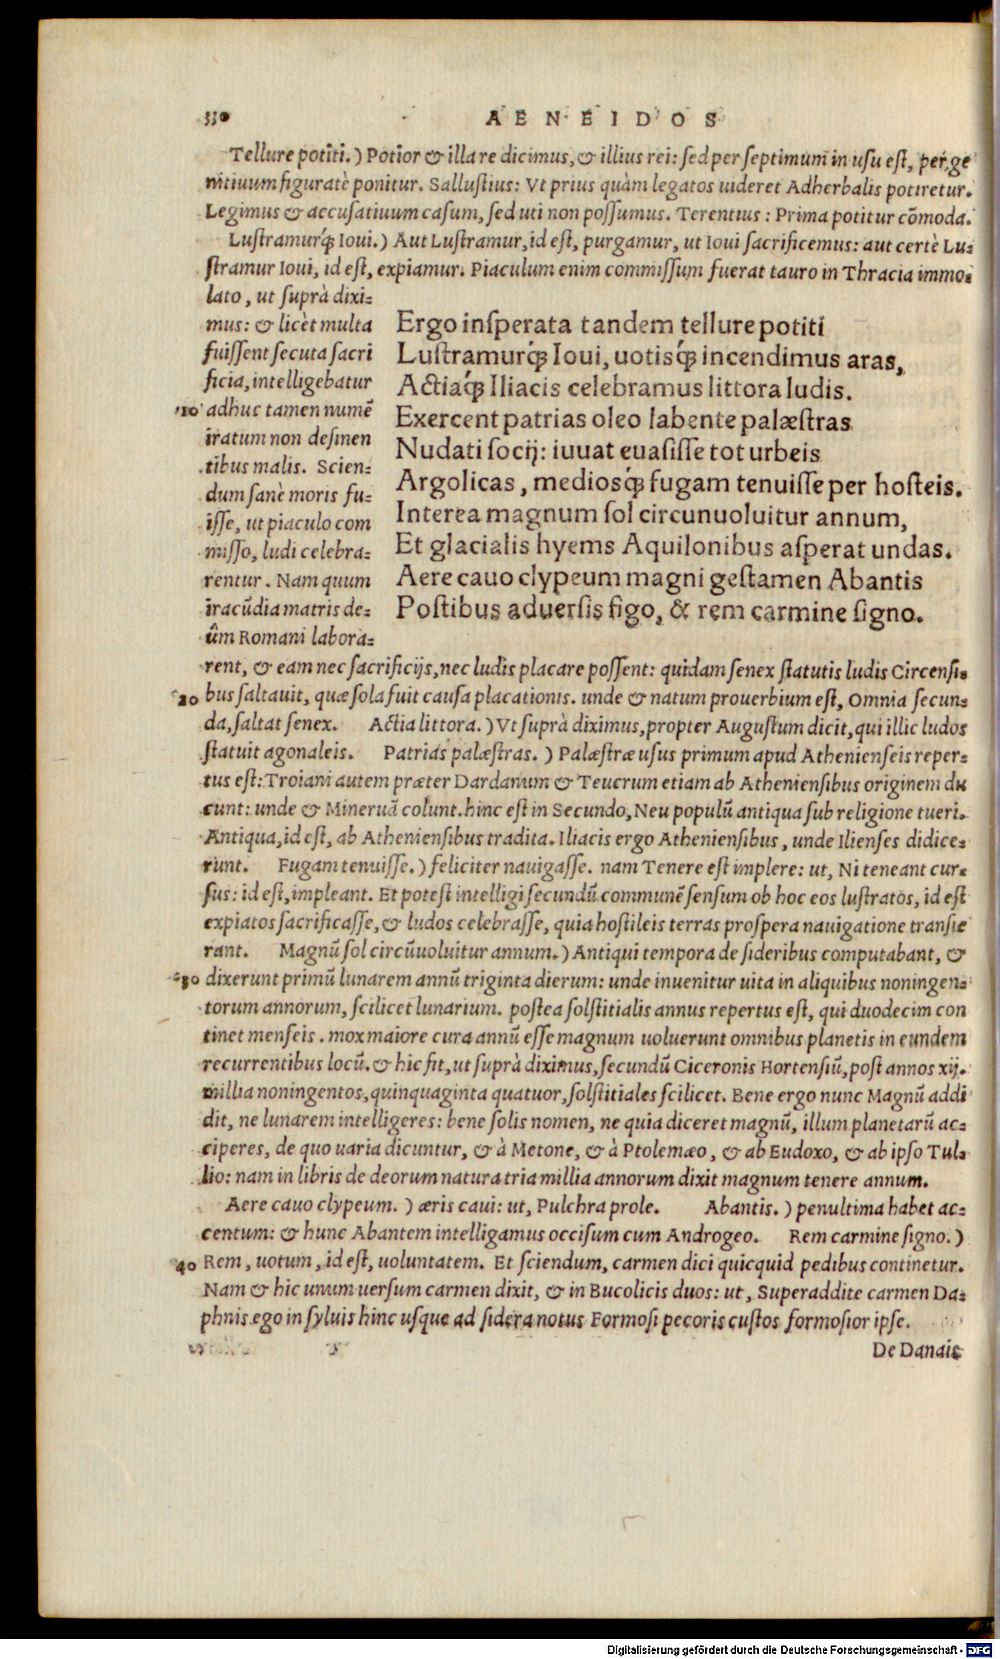 330 AENEIDOS
Tellure potiti.) Potior & illa re dicimus, & illius rei: sed per septimum in usu est, per ge
nitiuum figuratè ponitur. Sallustius: Vt prius quàm legatos uideret Adherbalis potiretur.
Legimus & accusatiuum casum, sed uti non possumus. Terentius: Prima potitur cõmoda.
Lustramurq́; Ioui.) Aut Lustramur, id est, purgamur, ut Ioui sacrificemus: aut certè Lu-
stramur Ioui, id est, expiamur. Piaculum enim commissum fuerat tauro in Thracia immo-
lato, ut suprà dixi-
mus: & licèt multa
fuissent secuta sacri
ficia, intelligebatur
10 adhuc tamen numẽ
iratum non desinen
tibus malis. Scien-
dum sanè moris fu-
isse, ut piaculo com
misso, ludi celebra-
rentur. Nam quum
iracũdia matris de-
ûm Romani labora-
Ergo insperata tandem tellure potiti
Lustramurq́; Ioui, uotisq́; incendimus aras,
Actiaq́; Iliacis celebramus littora ludis.
Exercent patrias oleo labente palæstras
Nudati socij: iuuat euasisse tot urbeis
Argolicas, mediosq́; fugam tenuisse per hosteis.
Interea magnum sol circunuoluitur annum,
Et glacialis hyems Aquilonibus asperat undas.
Aere cauo clypeum magni gestamen Abantis
Postibus aduersis figo, & rem carmine signo.
rent, & eam nec sacrificijs, nec ludis placare possent: quidam senex statutis ludis Circensi-
20 bus saltauit, quæ sola fuit causa placationis. unde & natum prouerbium est, Omnia secun-
da, saltat senex. Actia littora.) Vt suprà diximus, propter Augustum dicit, qui illic ludos
statuit agonaleis. Patrias palæstras.) Palæstræ usus primum apud Athenienseis reper-
tus est: Troiani autem præter Dardanum & Teucrum etiam ab Atheniensibus originem du
cunt: unde & Mineruã colunt. hinc est in Secundo, Neu populũ antiqua sub religione tueri.
Antiqua, id est, ab Atheniensibus tradita. Iliacis ergo Atheniensibus, unde Ilienses didice-
runt. Fugam tenuisse.) feliciter nauigasse. nam Tenere est implere: ut, Ni teneant cur-
sus: id est, impleant. Et potest intelligi secundũ communẽ sensum ob hoc eos lustratos, id est
expiatos sacrificasse, & ludos celebrasse, quia hostileis terras prospera nauigatione transie
rant. Magnũ sol circũuoluitur annum.) Antiqui tempora de sideribus computabant, &
30 dixerunt primũ lunarem annũ triginta dierum: unde inuenitur uita in aliquibus noningen-
torum annorum, scilicet lunarium. postea solstitialis annus repertus est, qui duodecim con
tinet menseis. mox maiore cura annũ esse magnum uoluerunt omnibus planetis in eundem
recurrentibus locũ. & hic fit, ut suprà diximus, secundũ Ciceronis Hortensiũ, post annos xij.
millia noningentos, quinquaginta quatuor, solstitiales scilicet. Bene ergo nunc Magnũ addi
dit, ne lunarem intelligeres: bene solis nomen, ne quia diceret magnũ, illum planetarũ ac-
ciperes, de quo uaria dicuntur, & à Metone, & à Ptolemæo, & ab Eudoxo, & ab ipso Tul-
lio: nam in libris de deorum natura tria millia annorum dixit magnum tenere annum.
Aere cauo clypeum.) æris caui: ut, Pulchra prole. Abantis.) penultima habet ac-
centum: & hunc Abantem intelligamus occisum cum Androgeo. Rem carmine signo.)
40 Rem, uotum, id est, uoluntatem. Et sciendum, carmen dici quicquid pedibus continetur.
Nam & hic unum uersum carmen dixit, & in Bucolicis duos: ut, Superaddite carmen Da-
phnis ego in syluis hinc usque ad sidera notus Formosi pecoris custos formosior ipse.
De Danais
Digitalisierung gefördert durch die Deutsche Forschungsgemeinschaft - DFG